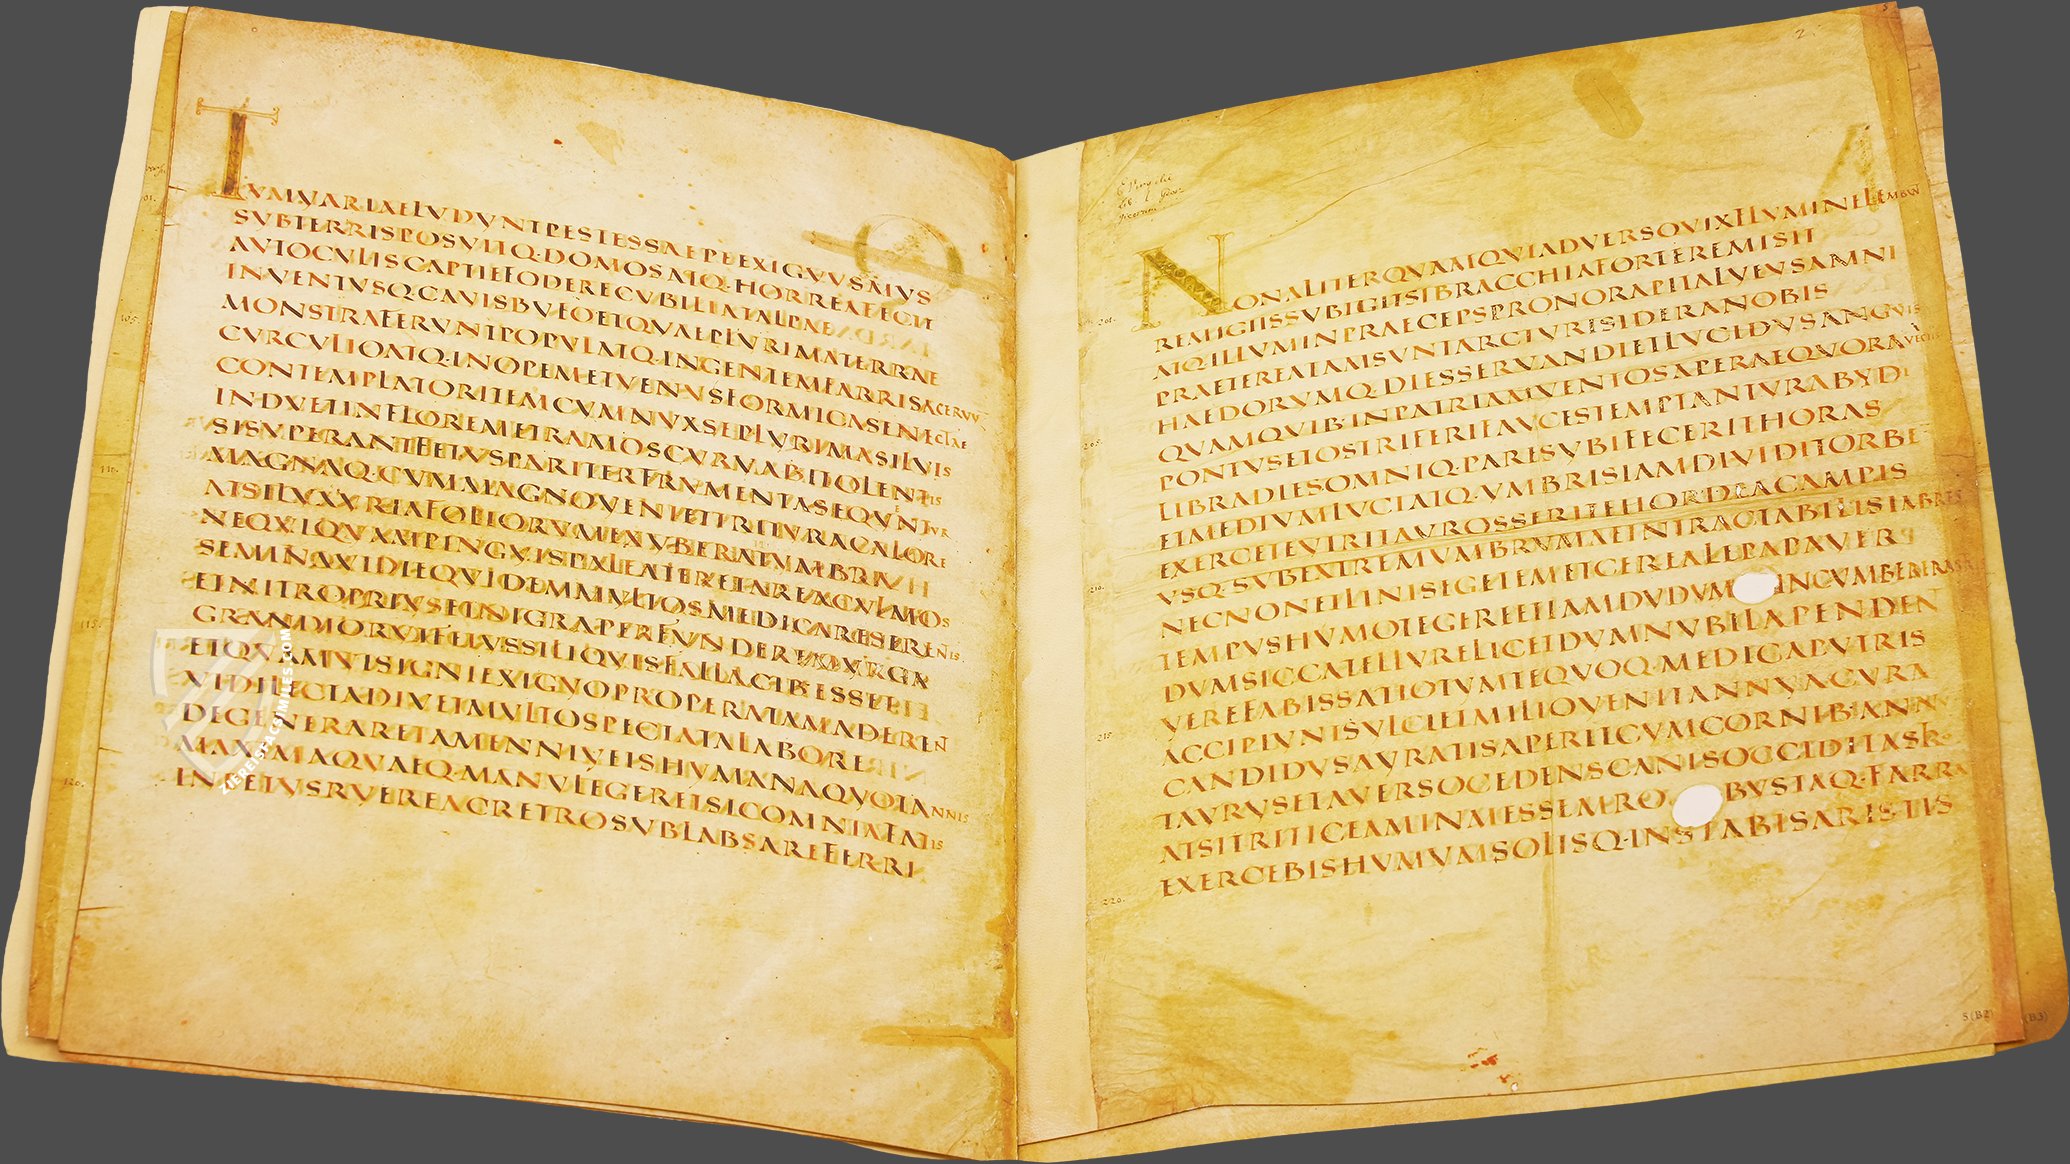 TVMVARIAELVDVNTPESTESSAEPEEXIGVVSMVS
SVBTERRISPOSVITQ·DOMOSATQ·HORREAFECIT
AVTOCVLISCAPTIEFODERECVBILIATALPAE
INVENTVSQ·CAVISBVFOETQVAEPLVRIMATERRAE
MONSTRAFERVNTPOPVLATQ·INGENTEMFARRISACERVVM
CVRCVLIOATQ·INOPEMETVENSFORMICASENECTAE
CONTEMPLATORITEMCVMNVXSEPLVRIMASILVIS
INDVETINFLOREMETRAMOSCVRVABITOLENTIS
SISVPERANTFETVSPARITERFRVMENTASEQVNTVR
MAGNAQ·CVMMAGNOVENIETTRITVRACALORE
ATSILVXVRIAFOLIORVMEXVBERATVMBRA
NEQVIQVAMPINGVISPALEATERETAREACVLMOS
SEMINAVIDIEQVIDEMMVLTOSMEDICARESERENTIS
ETNITROPRIVSETNIGRAPERFVNDERE
GRANDIORVTFETVSSILIQVISFALLACIB·ESSET
ETQVAMVISIGNIEXIGVOPROPERATAMADERENT
VIDILECTADIVETMVLTOSPECTATALABORE
DEGENERARETAMENNIVEISHVMANAQVOTANNIS
MAXIMAQVAEQ·MANVLEGERETSICOMNIAFATIS
INPEIVSRVEREACRETROSVBLABSAREFERRI
105.
110.
115.
120.
ZIEREISFACSIMILES.COM
2
NONALITERQVAMQVIADVERSOVIXFLVMINELEMBVM
REMIGIISSVBIGITSIBRACCHIAFORTEREMISIT
ATQ·ILLVMINPRAECEPSPRONORAPITALVEVSAMNI
PRAETEREATAMSVNTARCTVRISIDERANOBIS
HAEDORVMQ·DIESSERVANDIETLVCIDVSANGVIS
QVAMQVIB·INPATRIAMVENTOSAPERAEQVORAVECTIS
PONTVSETOSTRIFERIFAVCESTEMPTANTVRABYDI
LIBRADIESOMNIQ·PARESVBIFECERITHORAS
ETMEDIVMLVCIATQ·VMBRISIAMDIVIDITORBE
EXERCETEVIRITAVROSSERITEHORDEACAMPIS
VSQ·SVBEXTREMVMBRVMAEINTRACTABILISIMBREM
NECNONETLINISEGETEMETCEREALEPAPAVER
TEMPVSHVMOTEGEREETIAMDVDVMINCVMBERERASTRIS
DVMSICCATELLVRELICETDVMNVBILAPENDENT
VEREFABISSATIOTVMTEQVOQ·MEDICAPVTRIS
ACCIPIVNTSVLCIETMILIOVENITANNVACVRA
CANDIDVSAVRATISAPERITCVMCORNIB·ANNVM
TAVRVSETAVERSOCEDENSCANISOCCIDITASTRO
ATSITRITICEAMINMESSEMROBVSTAQ·FARRA
EXERCEBISHVMVMSOLISQ·INSTABISARISTIS
201.
205.
210.
215.
220.
5 (B2)
(B3)